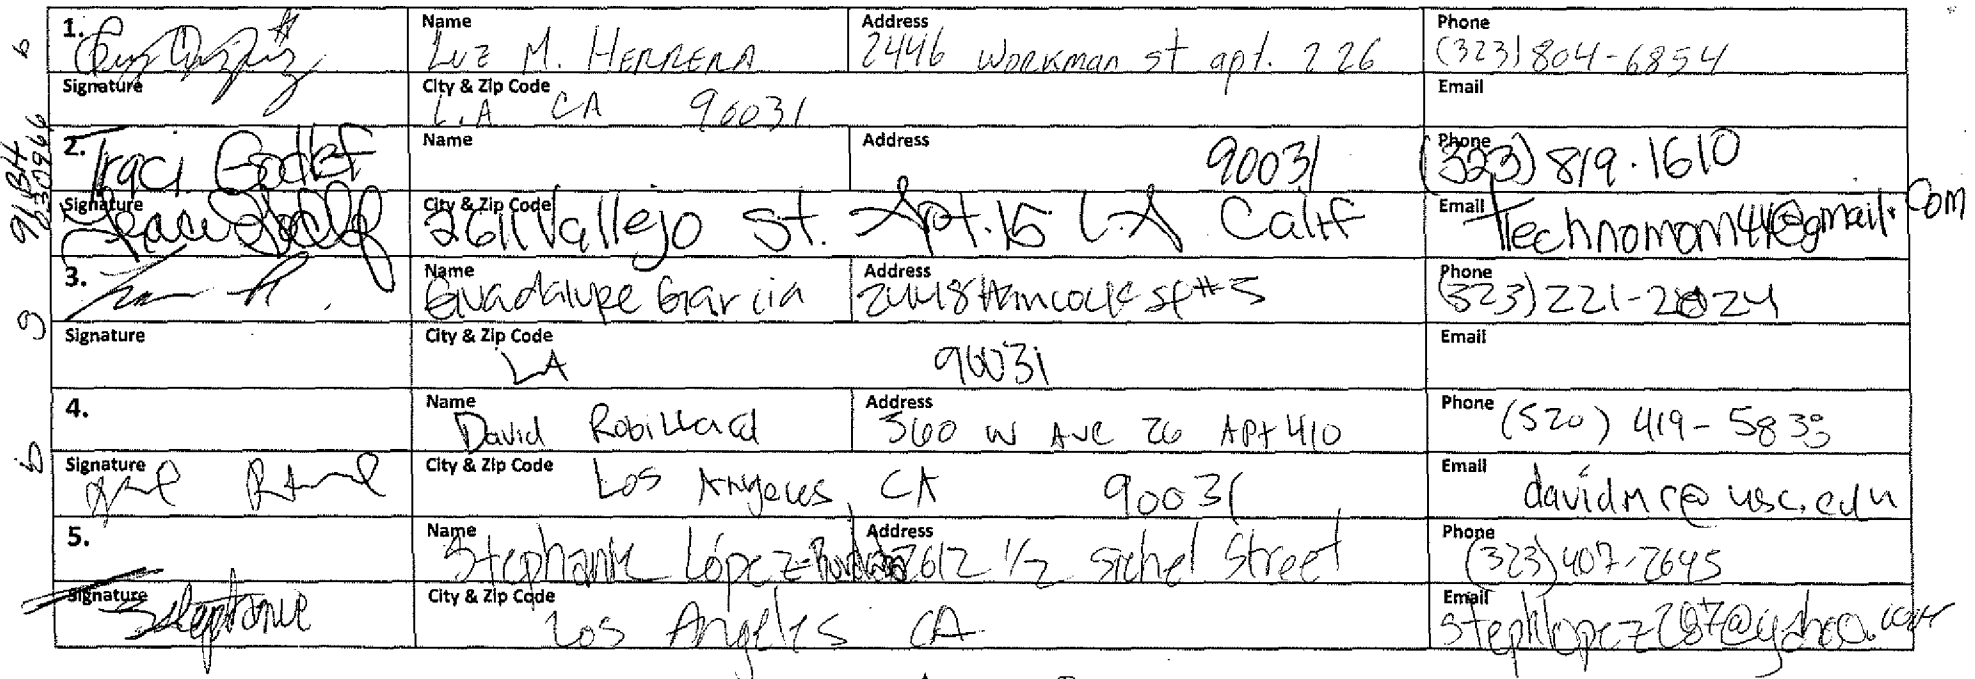 1. Name LUZ M. HERRERA Address 2446 WORKMAN st apt. 226 Phone (323) 804-6854
Signature City & Zip Code L.A CA 90031 Email
2. Traci Name Address 90031 Phone (323) 819.1610
Signature City & Zip Code 2611 Vallejo St. Apt.15 L.A Calif Email Technomom44@gmail.com
3. Name Guadalupe Garcia Address 2448 Hancock st #5 Phone (323) 221-2824
Signature City & Zip Code LA 90031 Email
4. Name David Robillard Address 360 W AVE 26 APt 410 Phone (520) 419-5833
Signature City & Zip Code Los Angeles, CA 90031 Email davidmr@usc.edu
5. Name Stephanie López- Address 2612 1/2 Sichel Street Phone (323) 407-2645
Signature Stephanie City & Zip Code Los Angeles CA Email